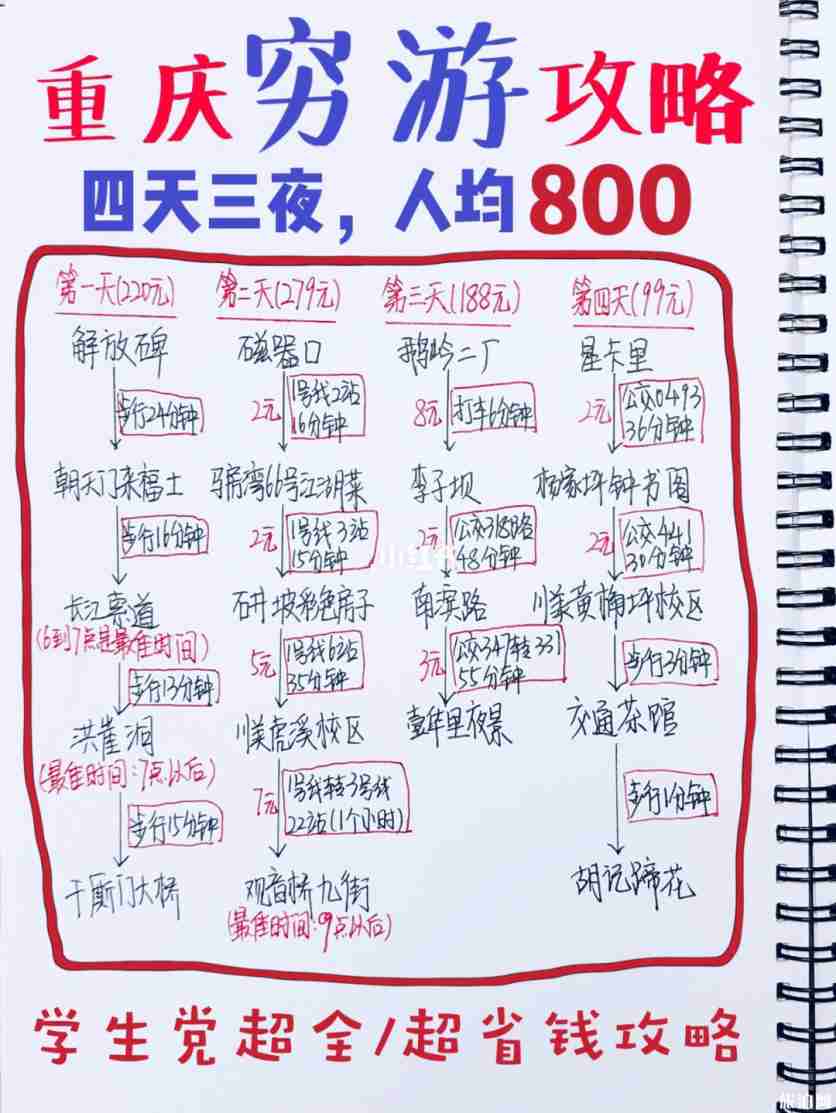 重庆穷游攻略
四天三夜，人均800
第一天(220元)
解放碑
步行24分钟
朝天门来福士
步行16分钟
长江索道
(6到7点是最佳时间)
步行13分钟
洪崖洞
(最佳时间:7点以后)
步行15分钟
千厮门大桥
第二天(279元)
磁器口
2元
1号线2站
16分钟
马房湾66号江湖菜
2元
1号线3站
15分钟
石井坡彩色房子
5元
1号线6站
35分钟
川美虎溪校区
7元
1号线转3号线
22站(1个小时)
观音桥九街
(最佳时间:9点以后)
第三天(188元)
鹅岭二厂
8元
打车6分钟
李子坝
2元
公交318路
48分钟
南滨路
3元
公交347转331
55分钟
壹华里夜景
第四天(99元)
星卡里
2元
公交0493
36分钟
杨家坪钟书阁
2元
公交441
30分钟
川美黄桷坪校区
步行3分钟
交通茶馆
步行1分钟
胡记蹄花
小红书
学生党超全/超省钱攻略